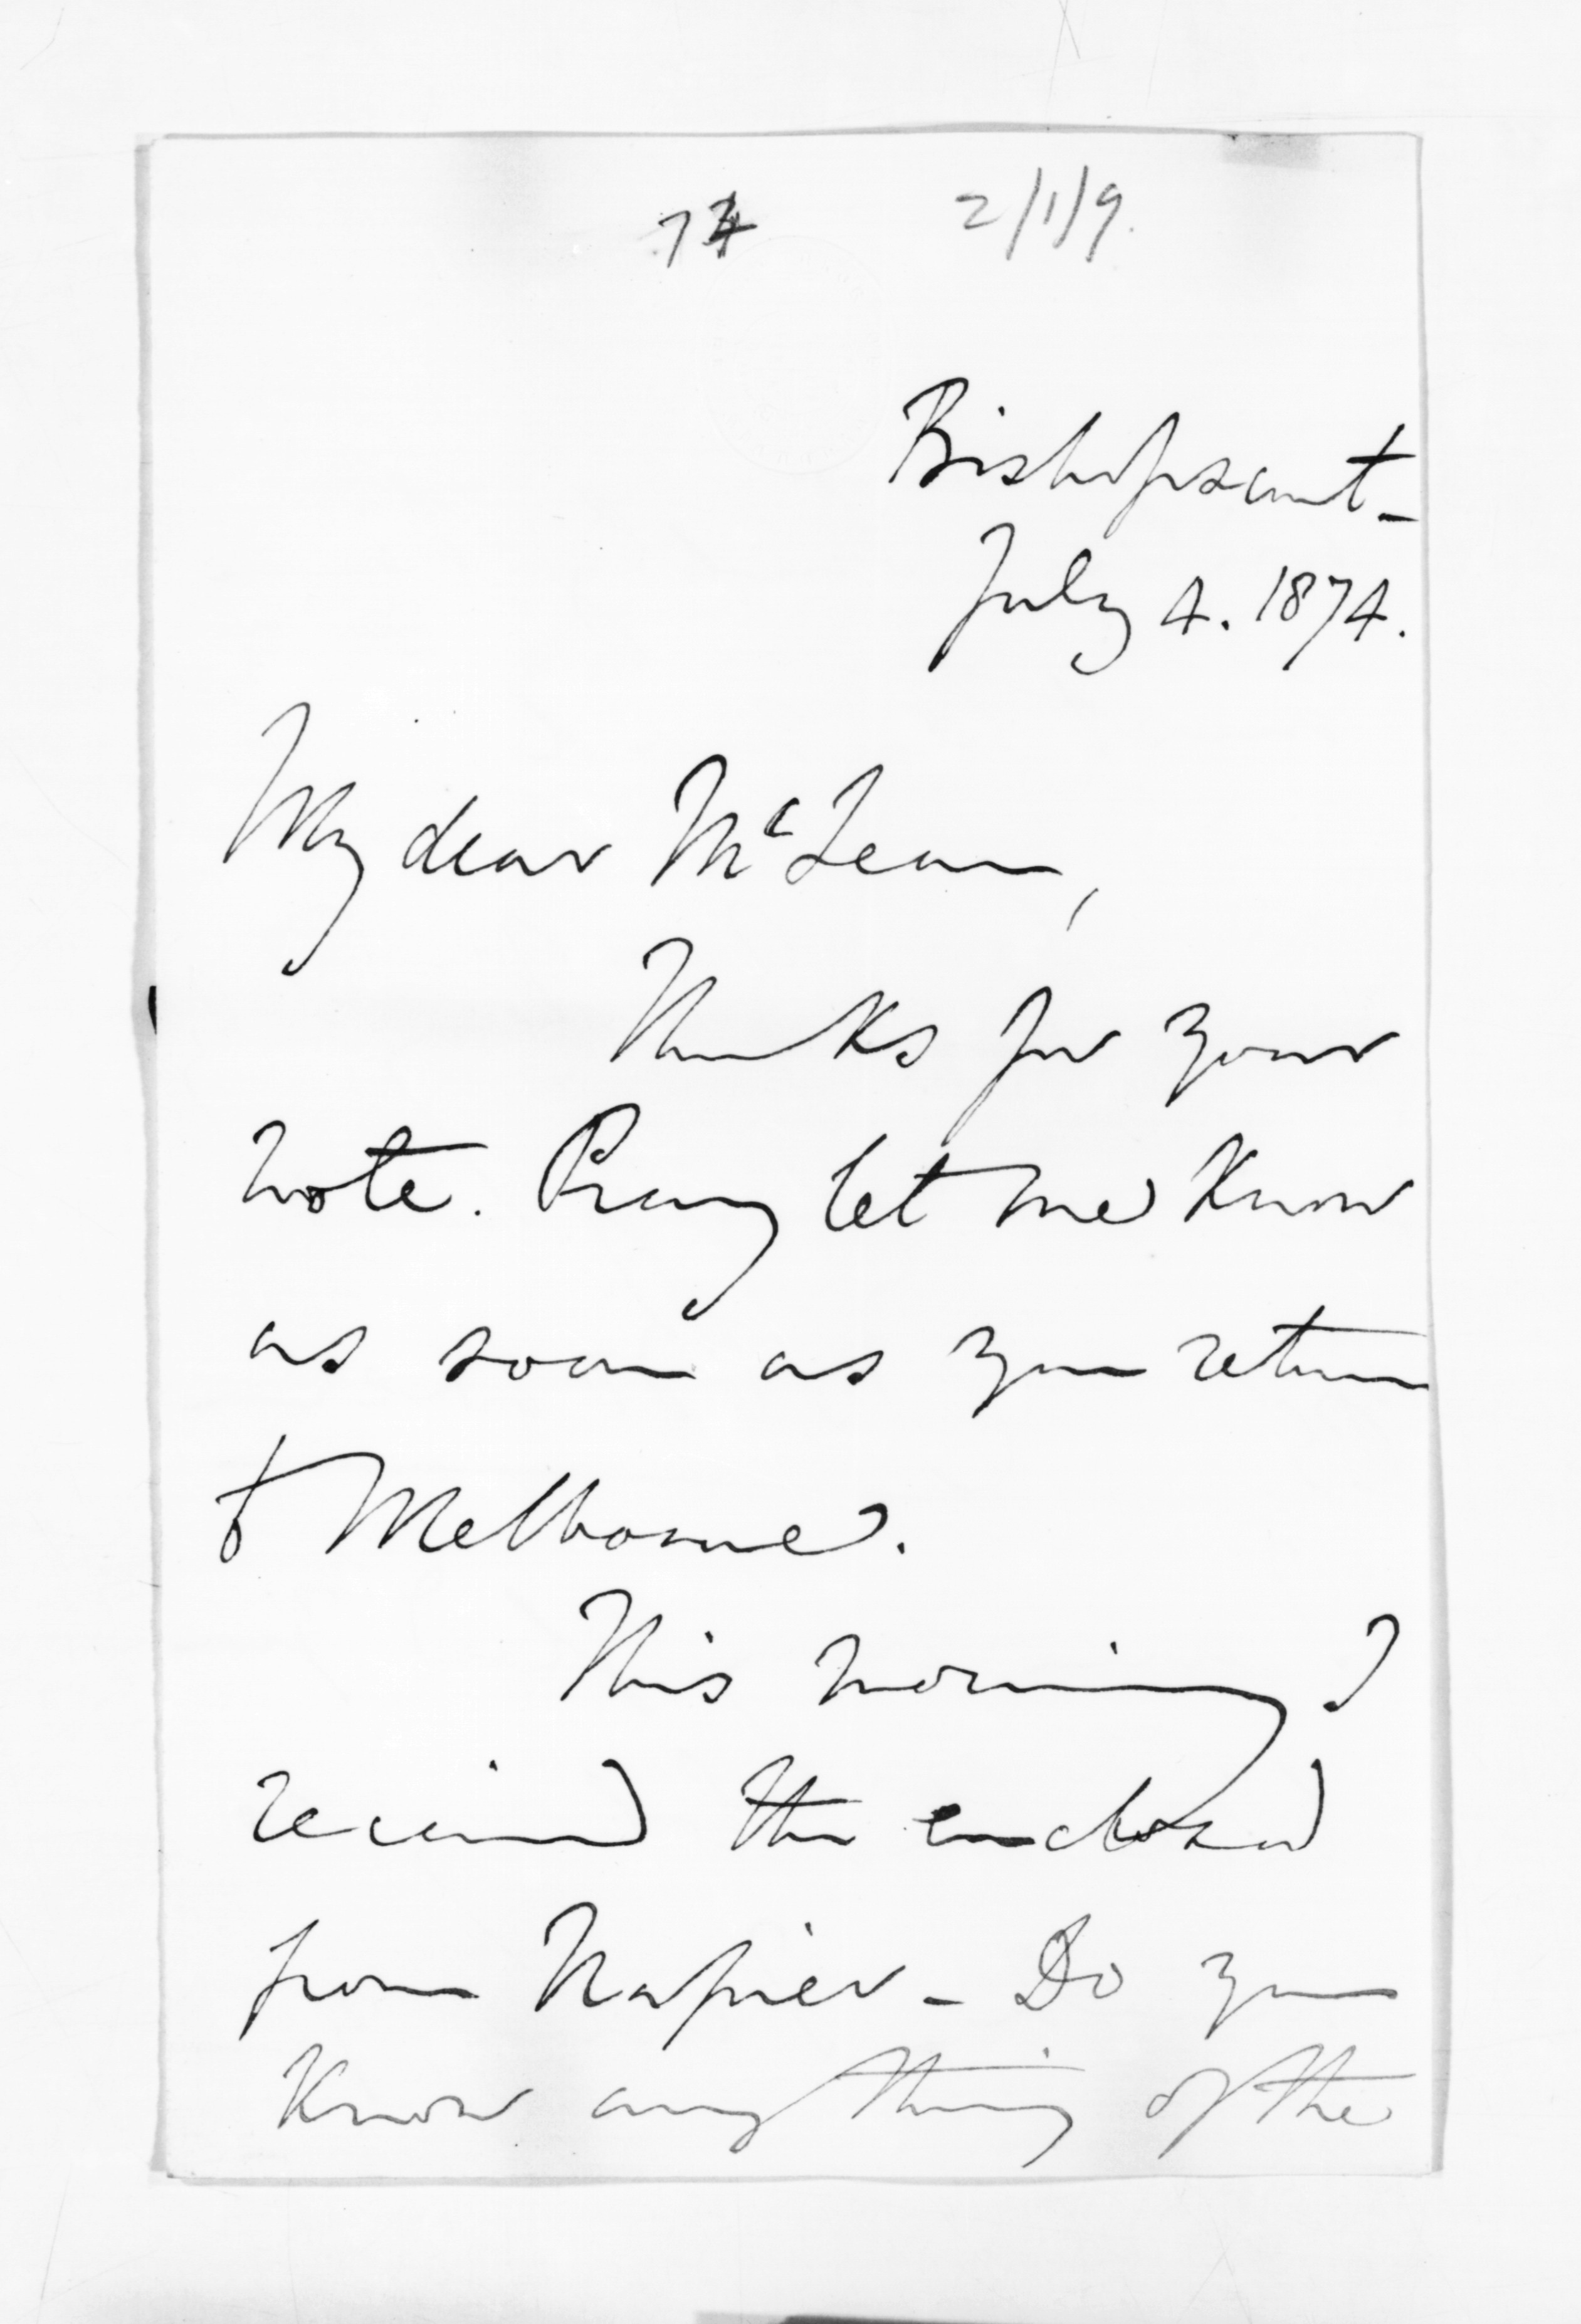 74 2/1/9.
Bishopscourt -
July 4. 1874.
My dear McLean,
Thanks for your
note. Pray let me know
as soon as you return
to Melbourne.
This morning I
received the enclosed
from Napier - Do you
know anything of the